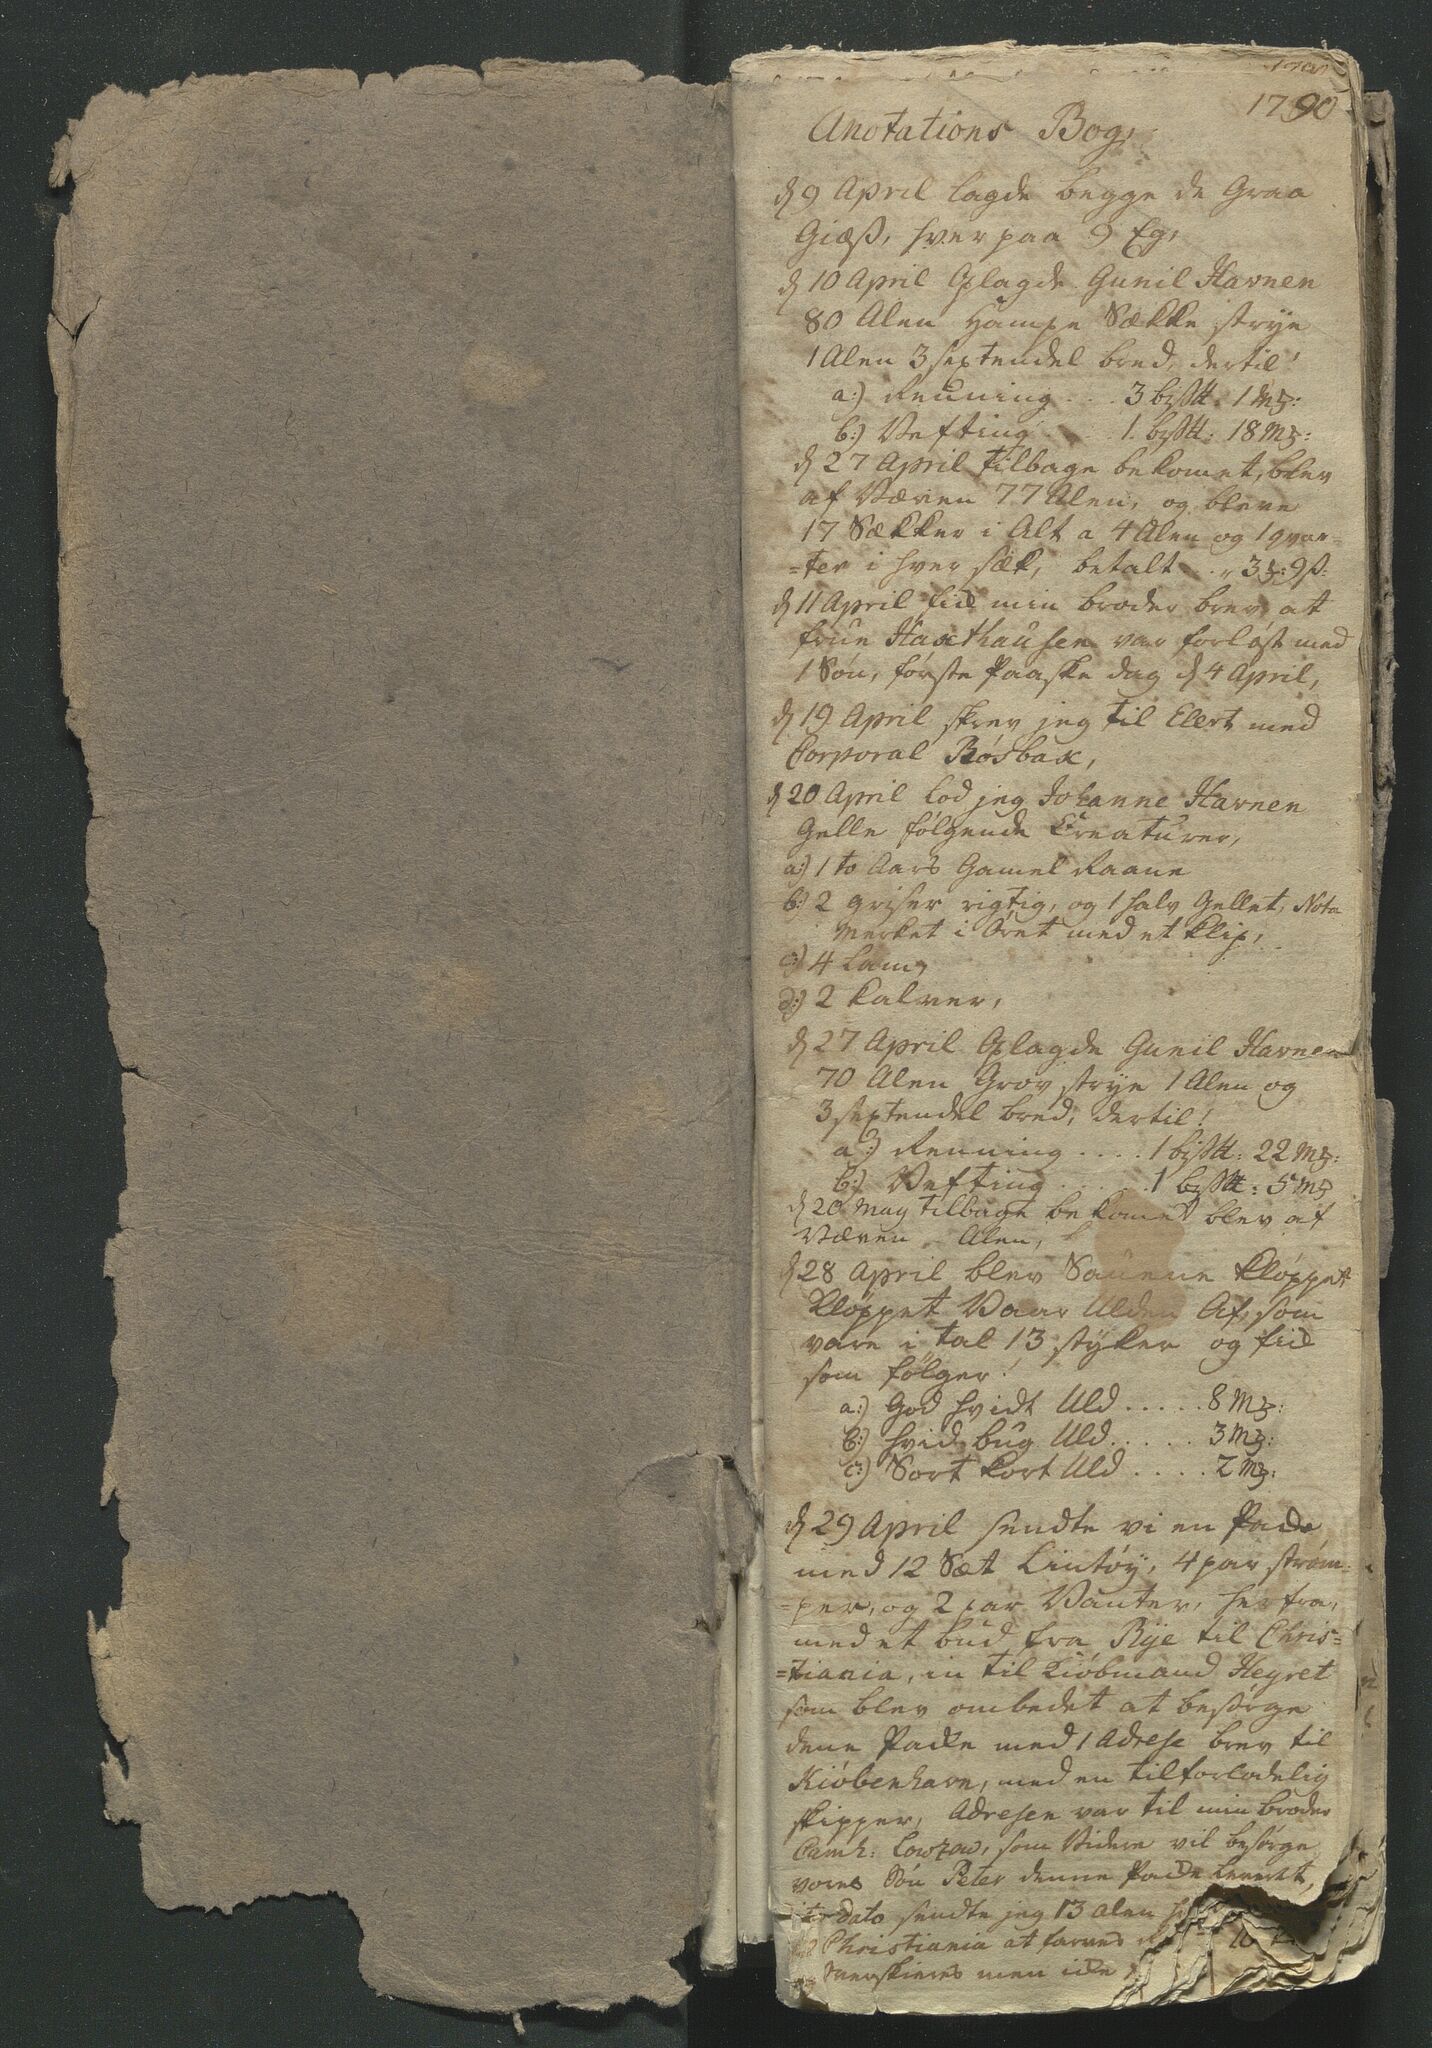 1790
Anotations Bog,
d 9 April lagde begge de Graa
Giæss, hver paa 9 Eg,
d 10 April Oplagde Gunil Havnen
80 Alen Hampe Sække strye
1 Alen 3 septendel bred, dertil!
a:) Renning . . . 3 bißtt: 1 M:
b:) Vefting . . . 1 bißtt: 18 M:
d 27 April tilbage bekomet, blev
af Væven 77 Alen, og bleve
17 Sækker i Alt a 4 Alen og 1 qvar=
=ter i hver sæk, betalt . „ 3 : 9 ß:
d 11 April fik min broder brev, at
frue Haxthausen var forløst med
1 Søn, første Paaske dag d 4 April,
d 19 April skrev jeg til Elert med
Corporal Røsbak,
d 20 April lod jeg Johanne Havnen
Gelle følgende Creaturer,
a:) 1 to Aars Gamel Raane
b:) 2 griser rigtig, og 1 halv Gellet, Nota
Merket i Øret med et klip,
c:) 4 Lam,
d:) 2 kalver,
d 27 April Oplagde Gunil Havnen
70 Alen Grov strye 1 Alen og
3 septendel bred, dertil!
a:) Renning . . . . 1 bißtt: 22 M:
b:) Vefting . . . . . 1 bißtt: 5 M
d 20 May tilbage bekomet blev af
Væven – Alen,
d 28 April blev Sauene kløppet,
kløppet Vaar Ulden Af, som
vare i tal 13 styker og fik
som følger!
a:) God hvidt Uld . . . . . 8 M:
b:) hvid bug Uld . . . . . 3 M:
c:) Sort kort Uld . . . . 2 M:
d 29 April sendte vi en Pake
med 12 Sæt Lintøy, 4 par strøm=
=per, og 2 par Vanter, herfra,
med et bud fra Rye til Chris=
=tiania, in til Kiøbmand Heyret
som blev ombedet at besørge
dene Pakke med 1 Adrese brev til
Kiøbenhavn, med en tilforladelig
skipper, Adresen var til min broder
Camh: Lowzow, som Videre vil besørge
vores Søn Peter denne Pakke leveret,
dato sendte jeg 13 Alen
Christiania at farves
Overskieres men icke